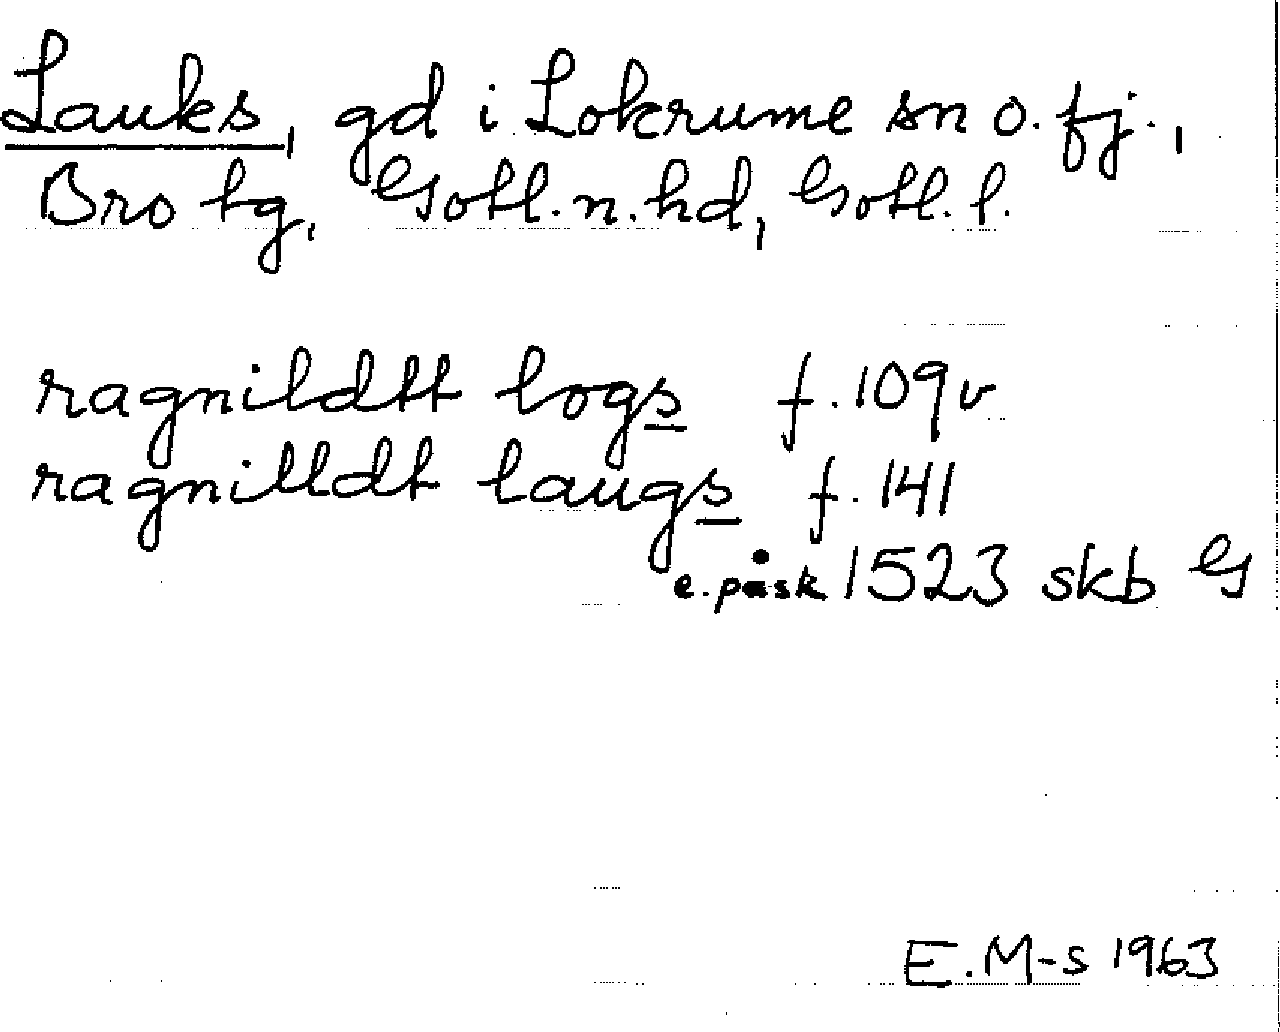 Lauks, gd i Lokrume sn o. fj.,
Bro tg, Gotl. n. hd, Gotl. l.
ragnildtt logs f. 109v
ragnilldt laugs f. 141
e. påsk 1523 skb G
E. M-s 1963